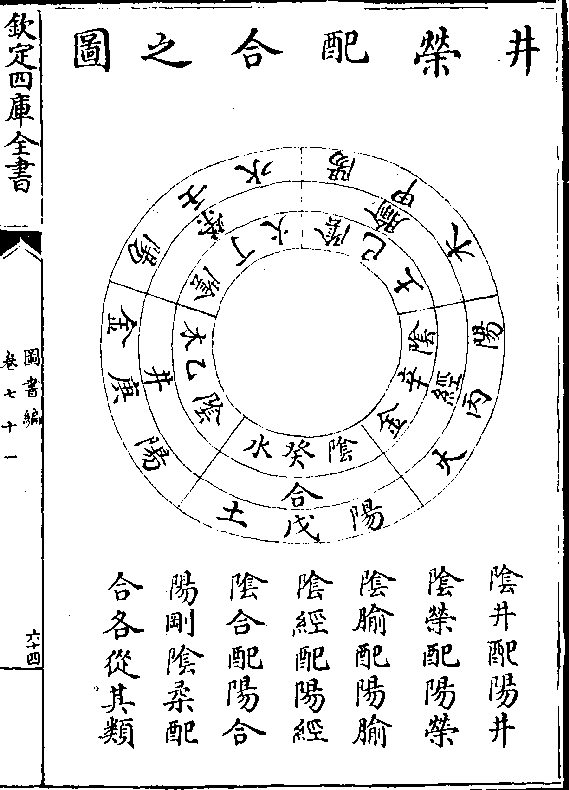 井榮配合之圖
陽甲木
腧
陰己土
陽丙火
經
陰辛金
陽戊土
合
陰癸水
陽庚金
井
陰乙木
陽壬水
榮
陰丁火
陰井配陽井
陰榮配陽榮
陰腧配陽腧
陰經配陽經
陰合配陽合
陽剛陰柔配
合各從其類
欽定四庫全書
圖書編
卷七十一
六十四